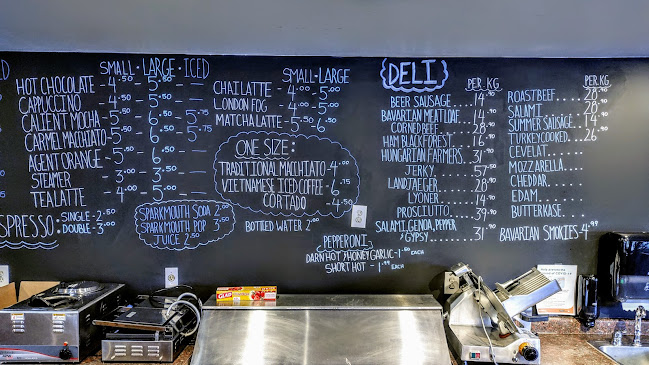 SMALL · LARGE · ICED
HOT CHOCOLATE - 4.50 - 5.50 -
CAPPUCCINO - 4.50 - 5.50 -
CALIENT MOCHA - 5.50 - 6.50 - 5.75
CARMEL MACCHIATO - 5.50 - 6.50 - 5.75
AGENT ORANGE - 5.50 - 6.50 -
STEAMER - 3.00 - 4.00 -
TEA LATTE - 4.00 - 5.00 -
ESPRESSO. SINGLE - 2.50
DOUBLE - 3.00
SPARKMOUTH SODA 2.50
SPARKMOUTH POP 3.50
JUICE 2.50
SMALL · LARGE
CHAI LATTE - 4.00 - 5.00
LONDON FOG - 4.00 - 5.00
MATCHA LATTE - 5.50 - 6.50
ONE SIZE:
TRADITIONAL MACCHIATO - 4.00
VIETNAMESE ICED COFFEE - 6.75
CORTADO - 4.50
BOTTLED WATER 2.00
PEPPERONI
DARN HOT / HONEY GARLIC - 1.60 EACH
SHORT HOT - 1.99 EACH
DELI
PER KG
BEER SAUSAGE 14.90
BAVARIAN MEATLOAF 14.90
CORNED BEEF 28.90
HAM BLACK FOREST 16.90
HUNGARIAN FARMERS 31.90
JERKY 57.50
LANDJAEGER 28.90
LYONER 14.90
PROSCIUTTO 39.90
SALAMI, GENOA, PEPPER
, GYPSY 31.90
PER KG
ROAST BEEF 28.90
SALAMI 28.90
SUMMER SAUSAGE 14.90
TURKEY COOKED 26.90
CEVELAT
MOZZARELLA
CHEDDAR
EDAM
BUTTERKASE
BAVARIAN SMOKIES 4.99
GLAD